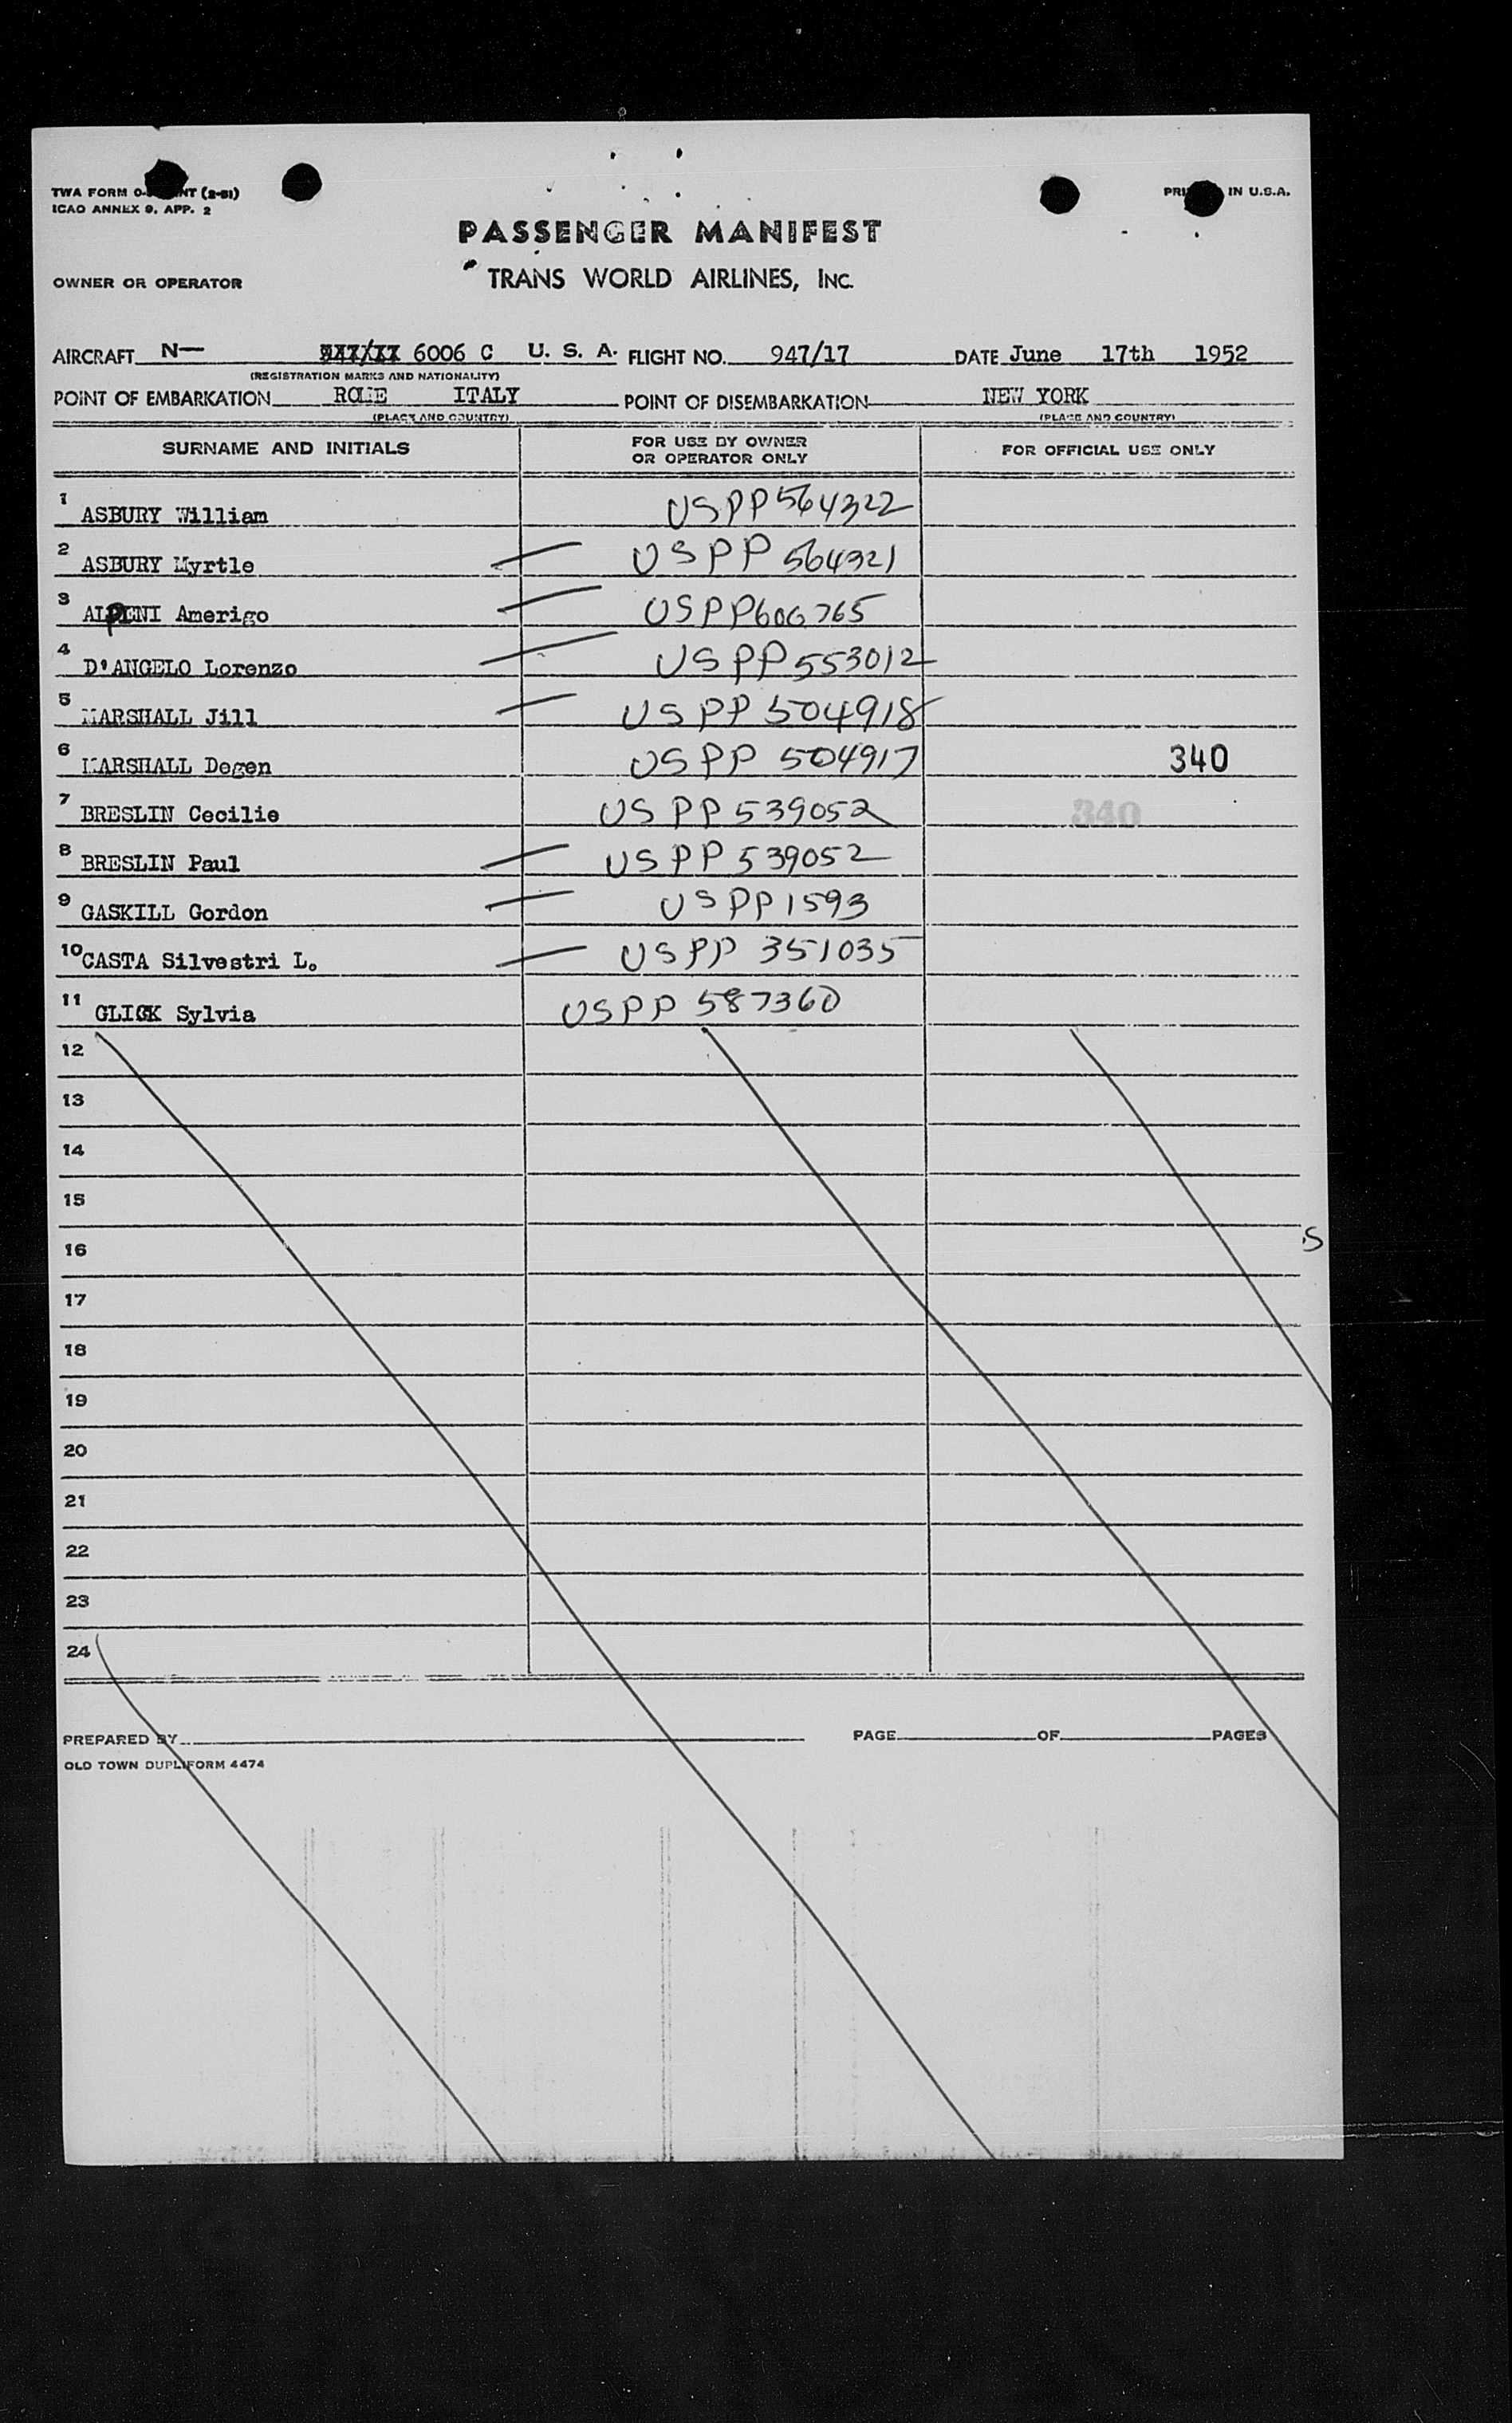 TWA FORM O- NT (2-51)
PRI IN U.S.A.
ICAO ANNEX 9, APP. 2
PASSENGER MANIFEST
OWNER OR OPERATOR TRANS WORLD AIRLINES, INC.
AIRCRAFT N— 6006 C U. S. A. FLIGHT NO. 947/17 DATE June 17th 1952
(REGISTRATION MARKS AND NATIONALITY)
POINT OF EMBARKATION ROME ITALY POINT OF DISEMBARKATION NEW YORK
(PLACE AND COUNTRY) (PLACE AND COUNTRY)
SURNAME AND INITIALS FOR USE BY OWNER OR OPERATOR ONLY FOR OFFICIAL USE ONLY
1 ASBURY William USPP 564322
2 ASBURY Myrtle USPP 564321
3 Amerigo USPP 606765
4 D'ANGELO Lorenzo USPP 553012
5 MARSHALL Jill USPP 504918
6 MARSHALL Degen USPP 504917 340
7 BRESLIN Cecilie USPP 539052 340
8 BRESLIN Paul USPP 539052
9 GASKILL Gordon USPP 1593
10 CASTA Silvestri L. USPP 351035
11 GLICK Sylvia USPP 587360
12
13
14
15
16
17
18
19
20
21
22
23
24
PREPARED BY PAGE OF PAGES
OLD TOWN DUPLIFORM 4474